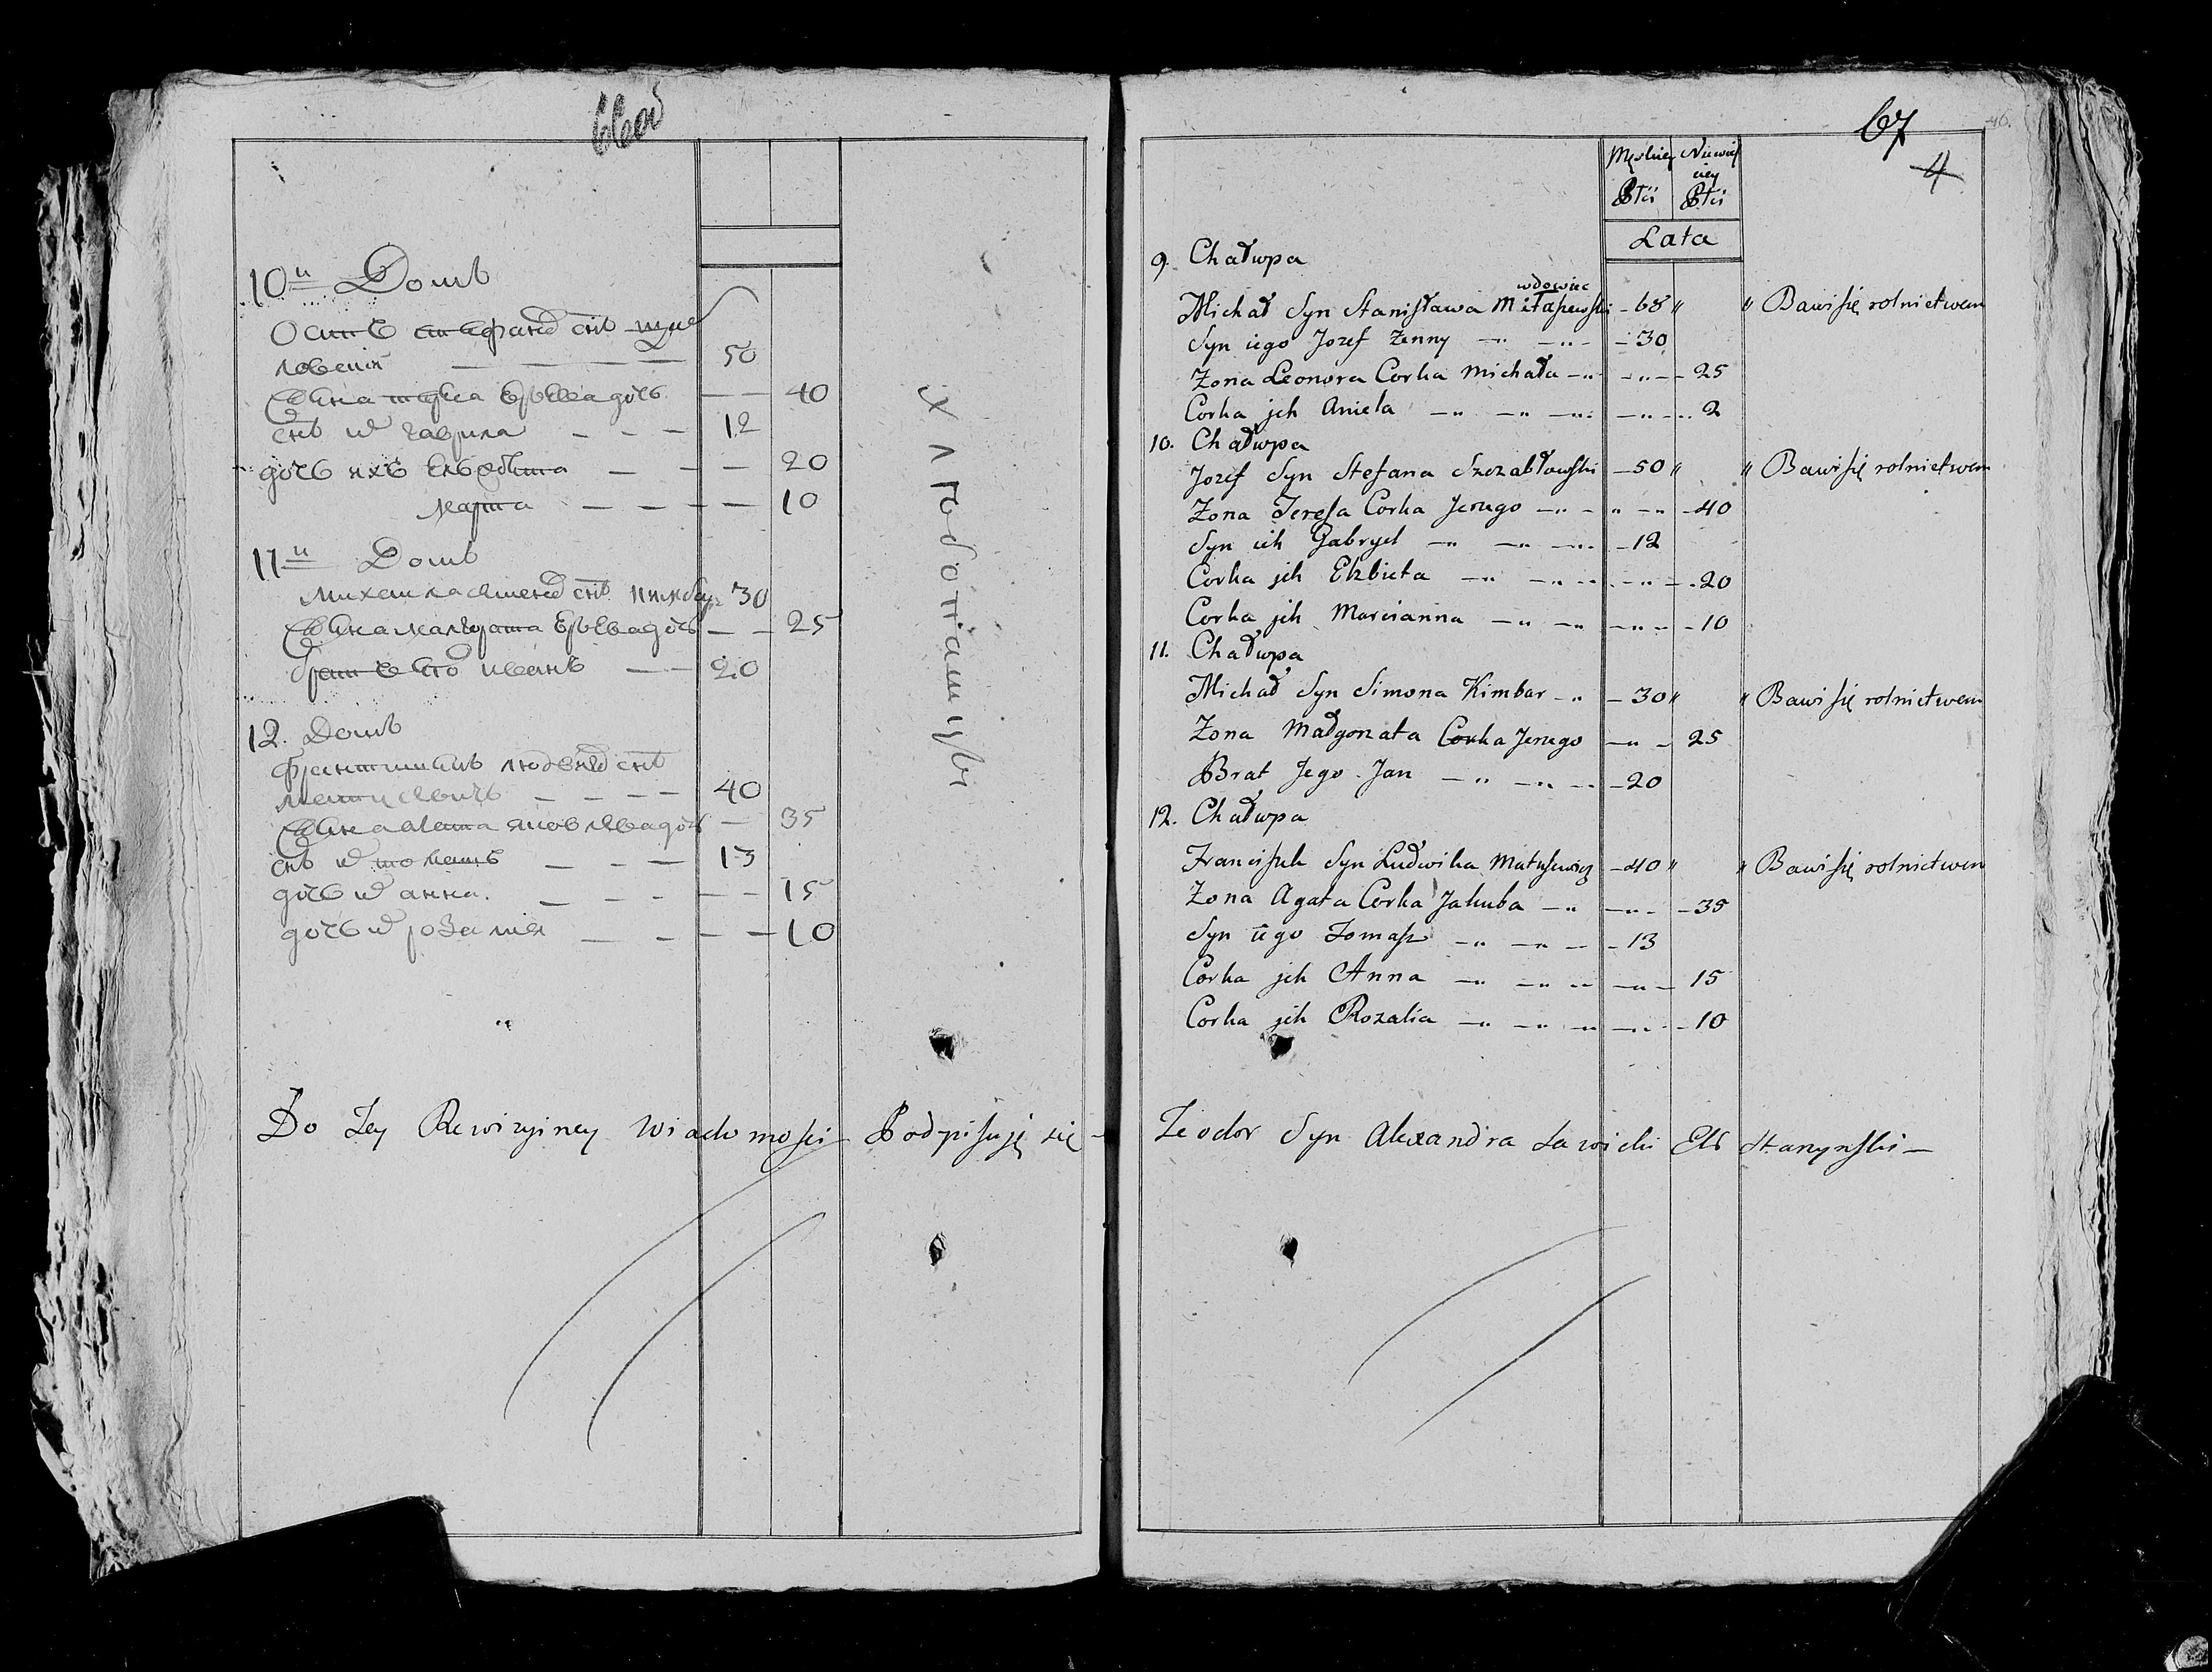 66об
10й Домъ
Осипъ стефановъ снъ щус
ловский — — — 50
Жена тереса Ерьева дочь — — 40
снъ ихъ гаврила — — — 12
дочь ихъ Елзбета — — — 20
марта — — — — 10
11й Домъ
Михаила снъ кимбар 30
Жена малгората Ерьева дочь — — 25
братъ его иванъ — — 20
12. Домъ
францишекъ людвиковъ снъ
матусевичъ — — — — 40
Жена агата яковлева дочь — 35
снъ их томашъ — — — 13
дочь их анна. — — — — — 15
дочь их розалия — — — — 10
хлѣбопашцы
Do Tey Rewizyiney Wiadomości Podpisuję się —
67
46.
4
Męskiey Płci
Niewieściey Płci
Lata
9. Chałupa
wdowiec
Michał Syn Stanisława - 68 " " Bawi się rolnictwem
Syn iego Jozef Żenny —"— —"— - 30
Żona Leonora Corka Michała —"— —"— - 25
Corka jch Aniela —"— —"— —"— —"— 2
10. Chałupa
Jozef Syn Stefana Szczabłowski — 50 " " Bawi się rolnictwem
Żona Teresa Corka Jerzego —"— - " —"— - 40
Syn ich Gabryel —"— —"— —"— - 12
Corka jch Elzbieta —"— —"— —"— - 20
Corka jch Marcianna —"— —"— —"— - 10
11. Chałupa
Michał Syn Simona Kimbar —"— - 30 " " Bawi się rolnictwem
Żona Małgorzata Corka Jerzego —"— - 25
Brat Jego Jan —"— —"— - 20
12. Chałupa
Franciszek Syn Ludwika Matusewicz - 40 " " Bawi się rolnictwem
Żona Agata Corka Jakuba —"— —"— - 35
Syn iego Tomasz —"— —"— - 13
Corka jch Anna —"— —"— —"— 15
Corka jch Rozalia —"— —"— —"— - 10
Teodor Syn Alexandra Ławicki